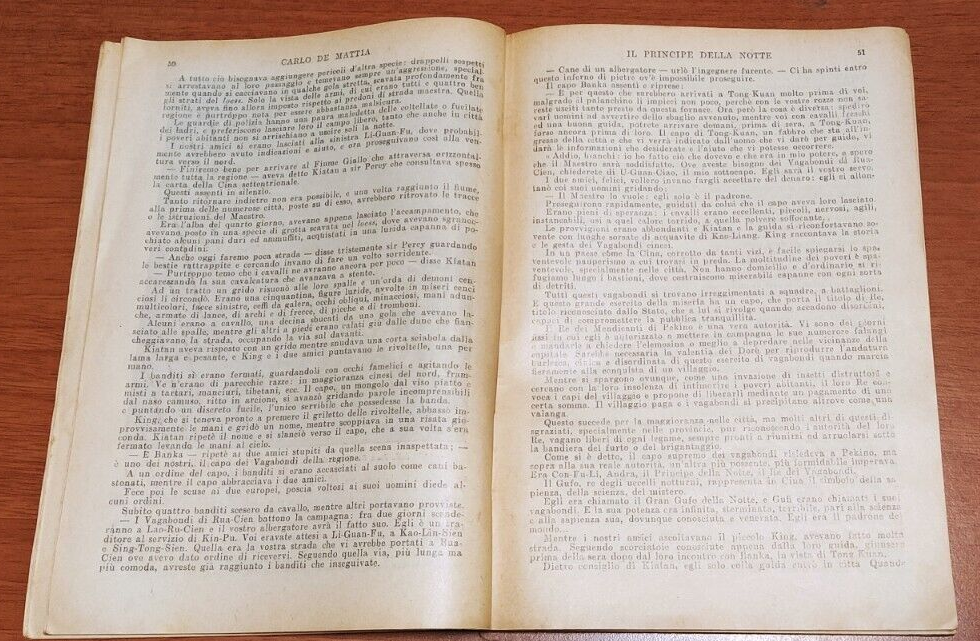 50 CARLO DE MATTIA
A tutto ciò bisognava aggiungere pericoli d'altra specie: drappelli sospetti
si arrestavano al loro passaggio e temevano sempre un'aggressione, special-
mente quando si cacciavano in qualche gola stretta, scavata profondamente fra
gli strati del loess. Solo la vista delle armi, di cui erano tutti e quattro ben
forniti, aveva fino allora imposto rispetto ai predoni di strada maestra. Quella
regione è purtroppo nota per essere abbastanza malsicura.
Le guardie di polizia hanno una paura maledetta delle coltellate o fucilate
dei ladri, e preferiscono lasciare loro il campo libero, tanto che anche in città
i poveri abitanti non si arrischiano a uscire soli la notte.
I nostri amici si erano lasciati alla sinistra Li-Guan-Fu, dove probabil-
mente avrebbero avuto indicazioni e aiuto, e ora proseguivano così alla ven-
tura verso il nord.
— Finiremo bene per arrivare al Fiume Giallo che attraversa orizzontal-
mente tutta la regione — aveva detto Kiatan a sir Percy che consultava spesso
la carta della Cina settentrionale.
Questi assentì in silenzio.
Tanto ritornare indietro non era possibile, e una volta raggiunto il fiume,
alla prima delle numerose città, poste su di esso, avrebbero ritrovato le tracce
o le istruzioni del Maestro.
Era l'alba del quarto giorno, avevano appena lasciato l'accampamento, che
avevano posto in una specie di grotta scavata nel loess, dove avevano sgranoc-
chiato alcuni pani duri ed ammuffiti, acquistati in una lurida capanna di po-
veri contadini.
— Anche oggi faremo poca strada — disse tristemente sir Percy guardando
le bestie rattrappite e cercando invano di fare un volto sorridente.
— Purtroppo temo che i cavalli ne avranno ancora per poco — disse Kiatan
accarezzando la sua cavalcatura che avanzava a stento.
Ad un tratto un grido risuonò alle loro spalle e un'orda di demoni cen-
ciosi li circondò. Erano una cinquantina, figure luride, avvolte in miseri cenci
multicolori, facce sinistre, ceffi da galera, occhi obliqui, minacciosi, mani adun-
che, armate di lance, di archi e di frecce, di picche e di tromboni.
Alcuni erano a cavallo, una decina sbucati da uno gola che avevano la-
sciato alle spalle, mentre gli altri a piedi erano calati giù dalle dune che fian-
cheggiavano la strada, occupando la via sul davanti.
Kiatan aveva risposto con un grido mentre snudava una corta sciabola dalla
lama larga e pesante, e King e i due amici puntavano le rivoltelle, una per
mano.
I banditi si erano fermati, guardandoli con occhi famelici e agitando le
armi. Ve n'erano di parecchie razze: in maggioranza cinesi del nord, fram-
misti a tartari, manciuri, tibetani, ecc. Il capo, un mongolo dal viso piatto e
dal naso camuso, ritto in arcione, si avanzò gridando parole incomprensibili
e puntando un discreto fucile, l'unico servibile che possedesse la banda.
King, che si teneva pronto a premere il griletto delle rivoltelle, abbassò im-
provvisamente le mani e gridò un nome, mentre scoppiava in una risata gio-
conda. Kiatan ripetè il nome e si slanciò verso il capo, che a sua volta s'era
fermato levando le mani al cielo.
— È Banka — ripetè ai due amici stupiti da quella scena inaspettata; —
è uno dei nostri, il capo dei Vagabondi della regione.
A un ordine del capo, i banditi si erano accasciati al suolo come cani ba-
stonati, mentre il capo abbracciava i due amici.
Fece poi le scuse ai due europei, poscia voltosi ai suoi uomini diede al-
cuni ordini.
Subito quattro banditi scesero da cavallo, mentre altri portavano provviste.
— I Vagabondi di Rua-Cien battono la campagna: fra due giorni scende-
ranno a Lao-Ru-Cien e il vostro albergatore avrà il fatto suo. Egli è un tra-
ditore al servizio di Kin-Pu. Voi eravate attesi a Li-Guan-Fu, a Kao-Lin-Sien
e Sing-Tong-Sien. Quella era la vostra strada che vi avrebbe portati a Rua-
Cien ove avevo dato ordine di ricevervi. Seguendo quella via, più lunga ma
più comoda, avreste già raggiunto i banditi che inseguivate.
IL PRINCIPE DELLA NOTTE 51
— Cane di un albergatore — urlò l'ingegnere furente. — Ci ha spinti entro
questo inferno di pietre ov'è impossibile proseguire.
Il capo Banka assentì e riprese:
— È per questo che sarebbero arrivati a Tong-Kuan molto prima di voi,
malgrado il palanchino li impicci non poco, perchè con le vostre rozze non sa-
reste usciti tanto presto da questa fornace. Ora però la cosa è diversa; spedirò
vari uomini ad avvertire dello sbaglio avvenuto, mentre voi con cavalli freschi
ed una buona guida, potrete arrivare domani, prima di sera, a Tong-Kuan,
forse ancora prima di loro. Il capo di Tong-Kuan, un fabbro che sta all'in-
gresso della città e che vi verrà indicato dall'uomo che vi darò per guida, vi
darà le informazioni che desiderate e l'aiuto che vi potesse occorrere.
« Addio, bianchi; io ho fatto ciò che dovevo e che era in mio potere, e spero
che il Maestro sarà soddisfatto. Ove aveste bisogno dei Vagabondi di Rua-
Cien, chiederete di U-Guan-Ciao, il mio sottocapo. Egli sarà il vostro servo.
I due amici, felici, vollero invano fargli accettare del denaro: egli si allon-
tanò coi suoi uomini gridando:
— Il Maestro lo vuole: egli solo è il padrone.
Proseguirono rapidamente, guidati da colui che il capo aveva loro lasciato.
Erano pieni di speranza: i cavalli erano eccellenti, piccoli, nervosi, agili,
instancabili, usi a quel calore torrido, a quella polvere soffocante.
Le provvigioni erano abbondanti e Kiatan e la guida si riconfortavano so-
vente con lunghe sorsate di acquavite di Kao-Liang. King raccontava la storia
e le gesta dei Vagabondi cinesi.
In un paese come la Cina, corrotto da tanti vizi, è facile spiegarsi lo spa-
ventevole pauperismo a cui trovasi in preda. La moltitudine dei poveri è spa-
ventevole, specialmente nelle città. Non hanno domicilio e d'ordinario si ri-
fugiano lungo i bastioni, dove costruiscono miserabili capanne con ogni sorta
di detriti.
Tutti questi vagabondi si trovano irreggimentati a squadre, a battaglioni.
E questo grande esercito della miseria ha un capo, che porta il titolo di Re,
titolo riconosciuto dallo Stato, che a lui si rivolge quando accadono disordini,
capaci di compromettere la pubblica tranquillità.
Il Re dei Mendicanti di Pekino è una vera autorità. Vi sono dei giorni
fissi in cui egli è autorizzato a mettere in campagna le sue numerose falangi
e mandarle a chiedere l'elemosina o meglio a depredare nelle vicinanze della
capitale. Sarebbe necessaria la valentìa dei Dorè per riprodurre l'andatura
burlesca, cinica e disordinata di questo esercito di vagabondi quando marcia
fieramente alla conquista di un villaggio.
Mentre si spargono ovunque, come una invasione di insetti distruttori e
cercano con la loro insolenza di intimorire i poveri abitanti, il loro Re con-
voca i capi del villaggio e propone di liberarli mediante un pagamento di una
certa somma. Il villaggio paga e i vagabondi si precipitano altrove come una
valanga.
Questo succede per la maggioranza nelle città, ma molti altri di questi di-
sgraziati, specialmente nelle provincie, pur riconoscendo l'autorità del loro
Re, vagano liberi di ogni legame, sempre pronti a riunirsi ed arruolarsi sotto
la bandiera del furto o del brigantaggio.
Come si è detto, il capo supremo dei vagabondi risiedeva a Pekino, ma
sopra alla sua reale autorità, un'altra più possente, più formidabile imperava.
Era Con-Fu-Li, Andra, il Principe della Notte, il Re dei Vagabondi.
Il Gufo, re degli uccelli notturni, rappresenta in Cina il simbolo della sa-
pienza, della scienza, del mistero.
Egli era chiamato il Gran Gufo della Notte, e Gufi erano chiamati i suoi
vagabondi. E la sua potenza era infinita, sterminata, terribile, pari alla scienza
e alla sapienza sua, dovunque conosciuta e venerata. Egli era il padrone del
mondo.
Mentre i nostri amici ascoltavano il piccolo King, avevano fatto molta
strada. Seguendo scorciatoie conosciute appena dalla loro guida, giunsero
prima della sera dopo dal loro incontro con Banka, in vista di Tong-Kuan.
Dietro consiglio di Kiatan, egli solo colla guida entrò in città. Quando